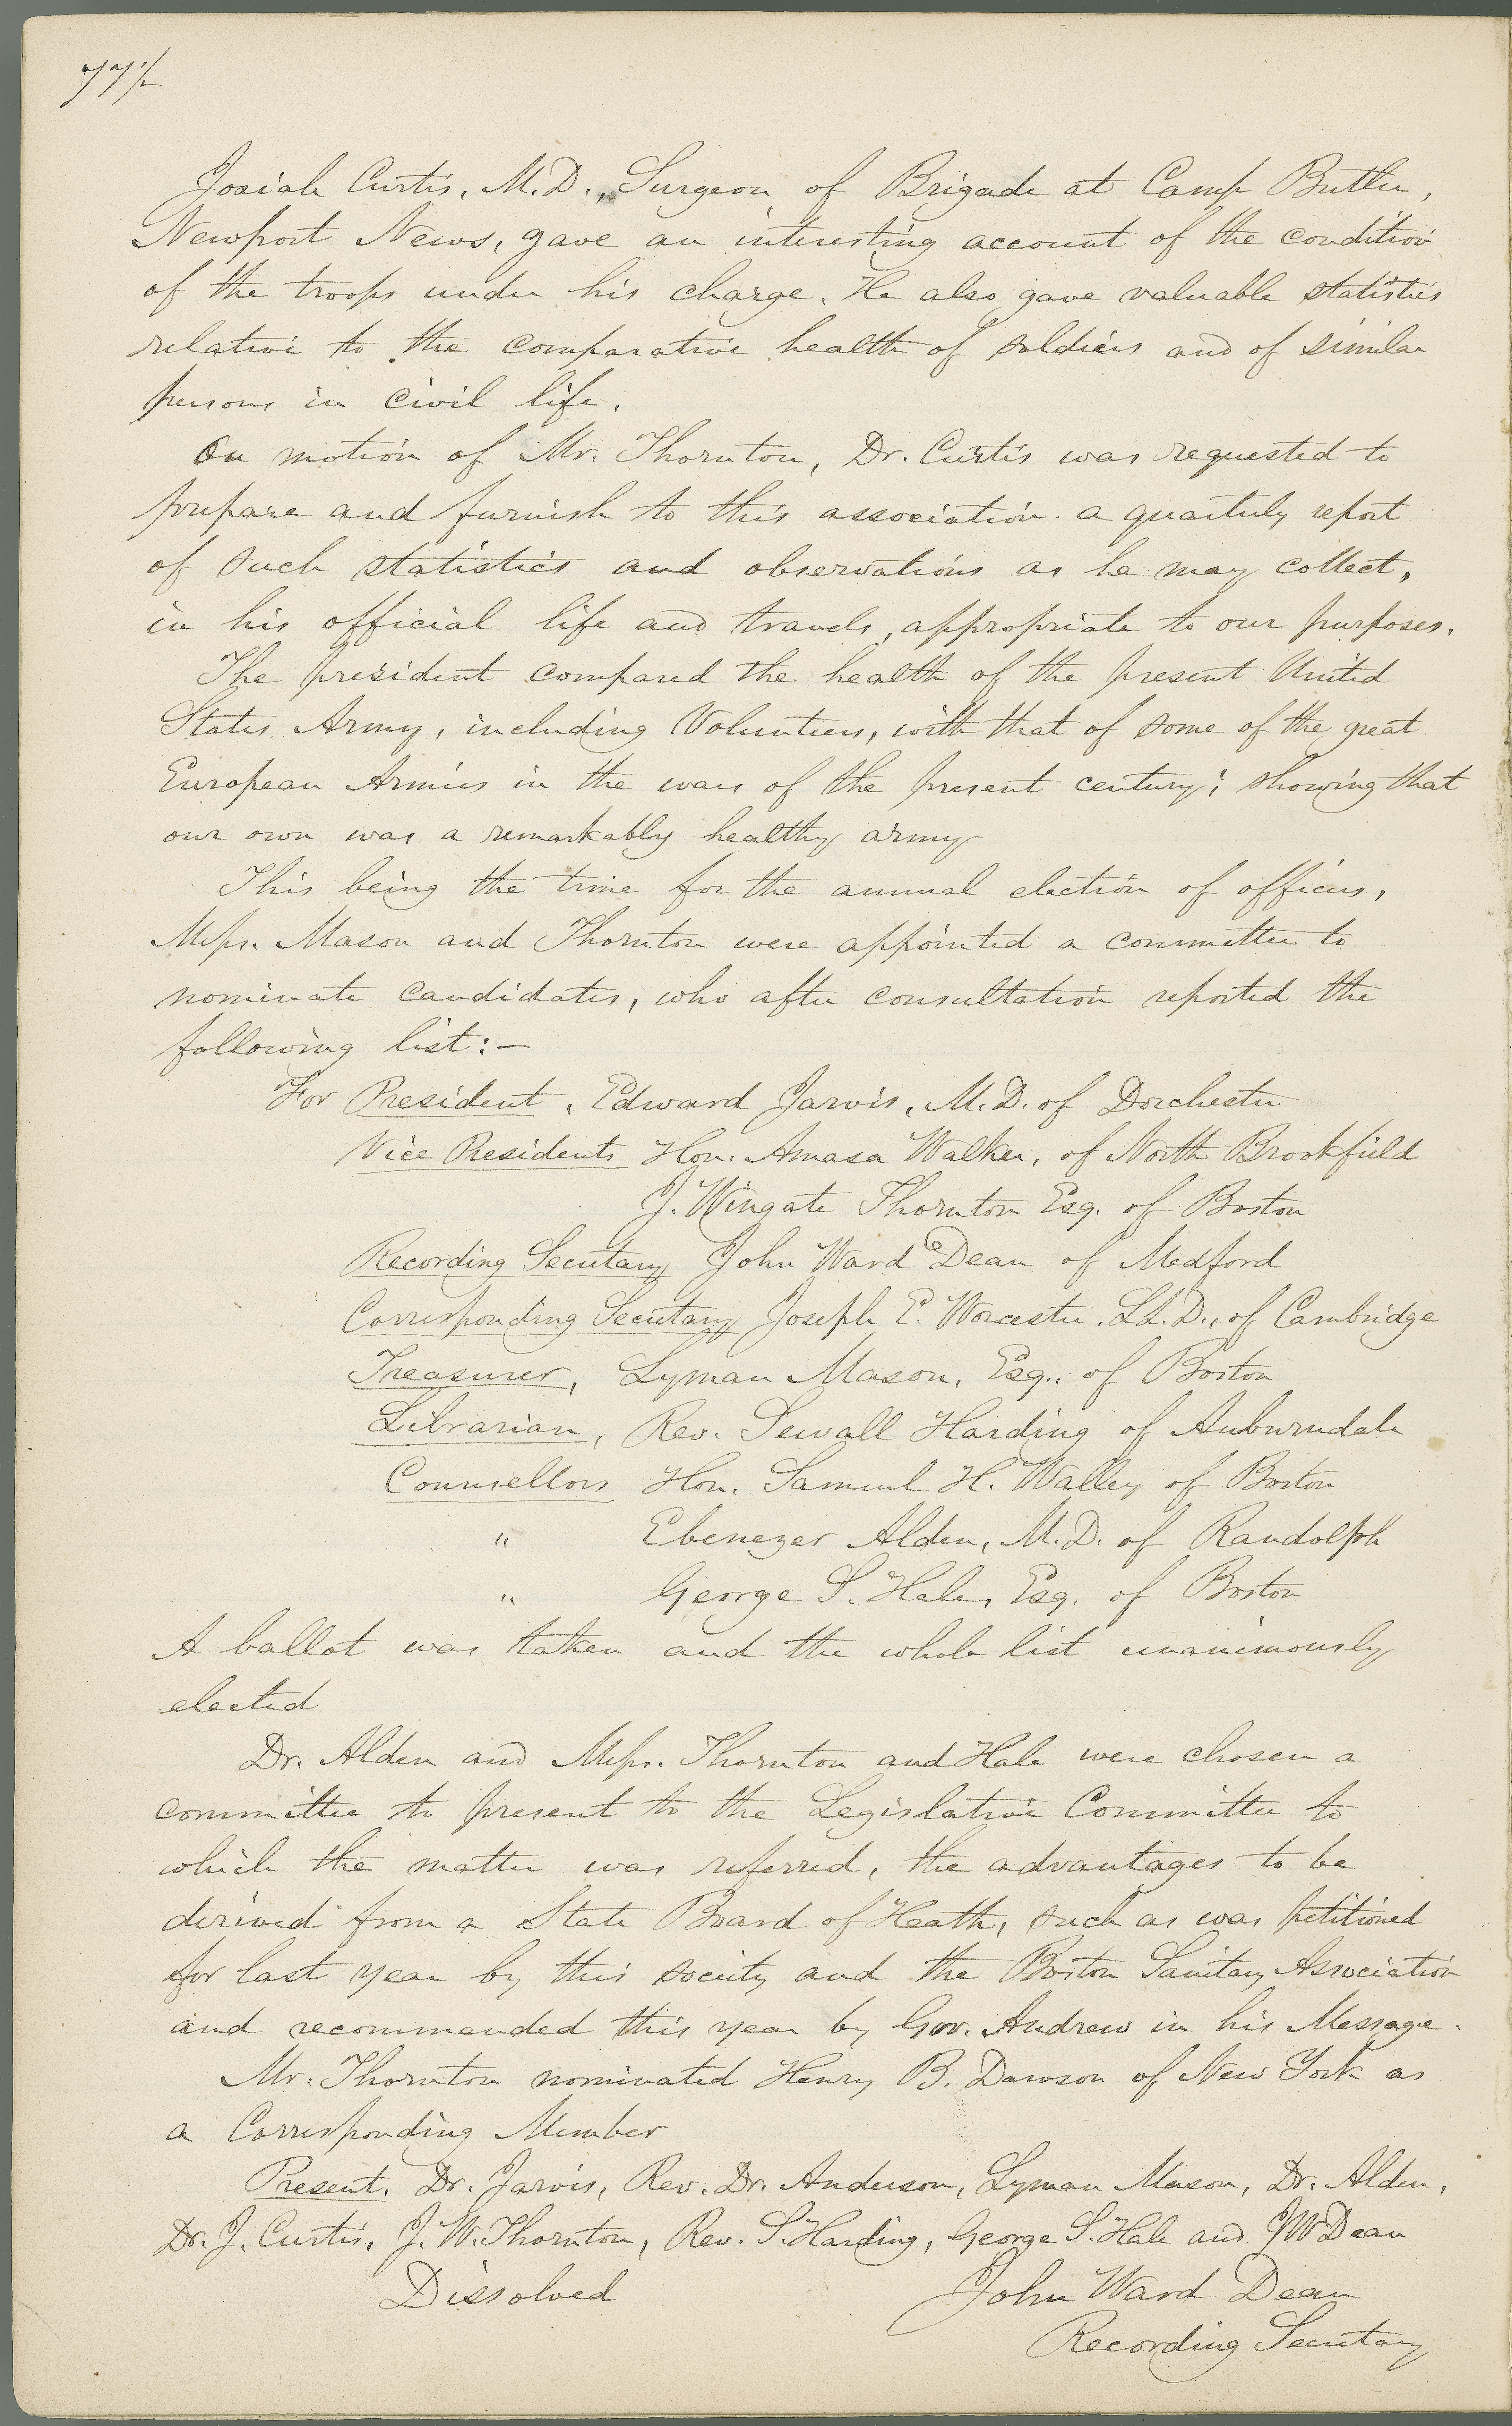 77½
Josiah Curtis, M.D., Surgeon of Brigade at Camp Butler,
Newport News, gave an interesting account of the condition
of the troops under his charge. He also gave valuable statistics
relative to the comparative health of soldiers and of similar
persons in civil life.
On motion of Mr. Thornton, Dr. Curtis was requested to
prepare and furnish to this association a quarterly report
of such statistics and observations as he may collect,
in his official life and travels, appropriate to our purposes.
The president compared the health of the present United
States Army, including Volunteers, with that of some of the great
European Armies in the wars of the present century; showing that
our own was a remarkably healthy army
This being the time for the annual election of officers,
Messrs. Mason and Thornton were appointed a committee to
nominate candidates, who after consultation reported the
following list:—
For President, Edward Jarvis, M.D. of Dorchester
Vice Presidents Hon. Amasa Walker, of North Brookfield
J. Wingate Thornton Esq. of Boston
Recording Secretary John Ward Dean of Medford
Corresponding Secretary Joseph E. Worcester, LL.D., of Cambridge
Treasurer, Lyman Mason, Esq., of Boston
Librarian, Rev. Sewall Harding of Auburndale
Counsellors Hon. Samuel H. Walley of Boston
" Ebenezer Alden, M.D. of Randolph
" George S. Hale, Esq. of Boston
A ballot was taken and the whole list unanimously
elected
Dr. Alden and Messrs. Thornton and Hale were chosen a
committee to present to the Legislative Committee to
which the matter was referred, the advantages to be
derived from a State Board of Heath, such as was petitioned
for last year by this society and the Boston Sanitary Association
and recommended this year by Gov. Andrew in his Message.
Mr. Thornton nominated Henry B. Dawson of New York as
a Corresponding Member
Present. Dr. Jarvis, Rev. Dr. Anderson, Lyman Mason, Dr. Alden,
Dr. J. Curtis, J. W. Thornton, Rev. S. Harding, George S. Hale and J W Dean
Dissolved John Ward Dean
Recording Secretary